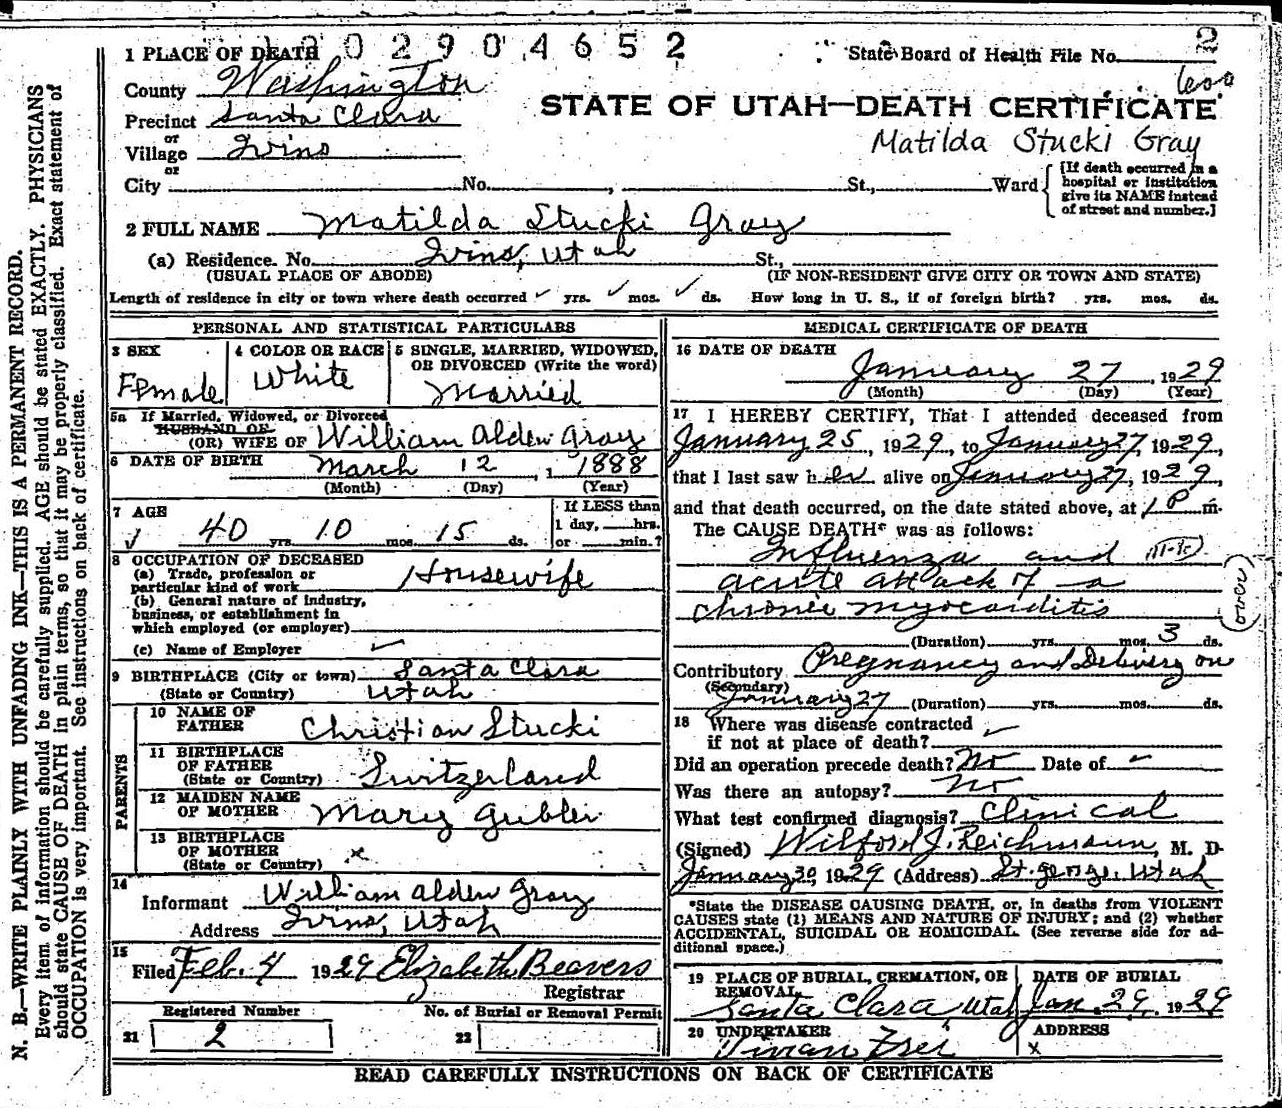 1 PLACE OF DEATH
1 2 0 2 9 0 4 6 5 2
State Board of Health File No. 2
County Washington
STATE OF UTAH—DEATH CERTIFICATE
Precinct Santa Clara
or
Village Ivins
or
Matilda Stucki Gray
City No. , St., Ward
[If death occurred in a
hospital or institution
give its NAME instead
of street and number.]
2 FULL NAME Matilda Stucki Gray
(a) Residence. No. Ivins, Utah St.,
(USUAL PLACE OF ABODE) (IF NON-RESIDENT GIVE CITY OR TOWN AND STATE)
Length of residence in city or town where death occurred ✓ yrs. ✓ mos. ✓ ds. How long in U. S., if of foreign birth? yrs. mos. ds.
PERSONAL AND STATISTICAL PARTICULARS
3 SEX
Female
4 COLOR OR RACE
White
5 SINGLE, MARRIED, WIDOWED,
OR DIVORCED (Write the word)
Married
5a If Married, Widowed, or Divorced
HUSBAND OF
(OR) WIFE OF William Alden Gray
6 DATE OF BIRTH March 12, 1 1888
(Month) (Day) (Year)
7 AGE
✓ 40 yrs. 10 mos. 15 ds.
If LESS than
1 day, hrs.
or min.?
8 OCCUPATION OF DECEASED
(a) Trade, profession or
particular kind of work Housewife
(b) General nature of industry,
business, or establishment in
which employed (or employer)
(c) Name of Employer ✓
9 BIRTHPLACE (City or town) Santa Clara
(State or Country) Utah
PARENTS
10 NAME OF
FATHER Christian Stucki
11 BIRTHPLACE
OF FATHER
(State or Country) Switzerland
12 MAIDEN NAME
OF MOTHER Mary Gubler
13 BIRTHPLACE
OF MOTHER
(State or Country) x
14
Informant William Alden Gray
Address Ivins, Utah
15
Filed Feb. 4 1929 Elizabeth Beavers
Registrar
Registered Number
21 2
No. of Burial or Removal Permit
22
MEDICAL CERTIFICATE OF DEATH
16 DATE OF DEATH
January 27, 1929
(Month) (Day) (Year)
17 I HEREBY CERTIFY, That I attended deceased from
January 25, 1929, to January 27, 1929,
that I last saw her alive on January 27, 1929,
and that death occurred, on the date stated above, at 1 P m.
The CAUSE DEATH* was as follows:
Influenza and
acute attack of a
chronic myocarditis
(over)
(Duration) yrs. mos. 3 ds.
Contributory Pregnancy and Delivery on
(Secondary) January 27 (Duration) yrs. mos. ds.
18 Where was disease contracted
if not at place of death? ✓
Did an operation precede death? No Date of ✓
Was there an autopsy? No
What test confirmed diagnosis? Clinical
(Signed) Wilford J. Reichmann, M. D.
January 30, 1929 (Address) St. George, Utah
*State the DISEASE CAUSING DEATH, or, in deaths from VIOLENT
CAUSES state (1) MEANS AND NATURE OF INJURY; and (2) whether
ACCIDENTAL, SUICIDAL OR HOMICIDAL. (See reverse side for ad-
ditional space.)
19 PLACE OF BURIAL, CREMATION, OR
REMOVAL
Santa Clara, Utah
DATE OF BURIAL
Jan. 29, 1929
20 UNDERTAKER
Vivian Frei
ADDRESS
x
READ CAREFULLY INSTRUCTIONS ON BACK OF CERTIFICATE
N. B.—WRITE PLAINLY WITH UNFADING INK—THIS IS A PERMANENT RECORD.
Every item of information should be carefully supplied. AGE should be stated EXACTLY. PHYSICIANS
should state CAUSE OF DEATH in plain terms, so that it may be properly classified. Exact statement of
OCCUPATION is very important. See instructions on back of certificate.